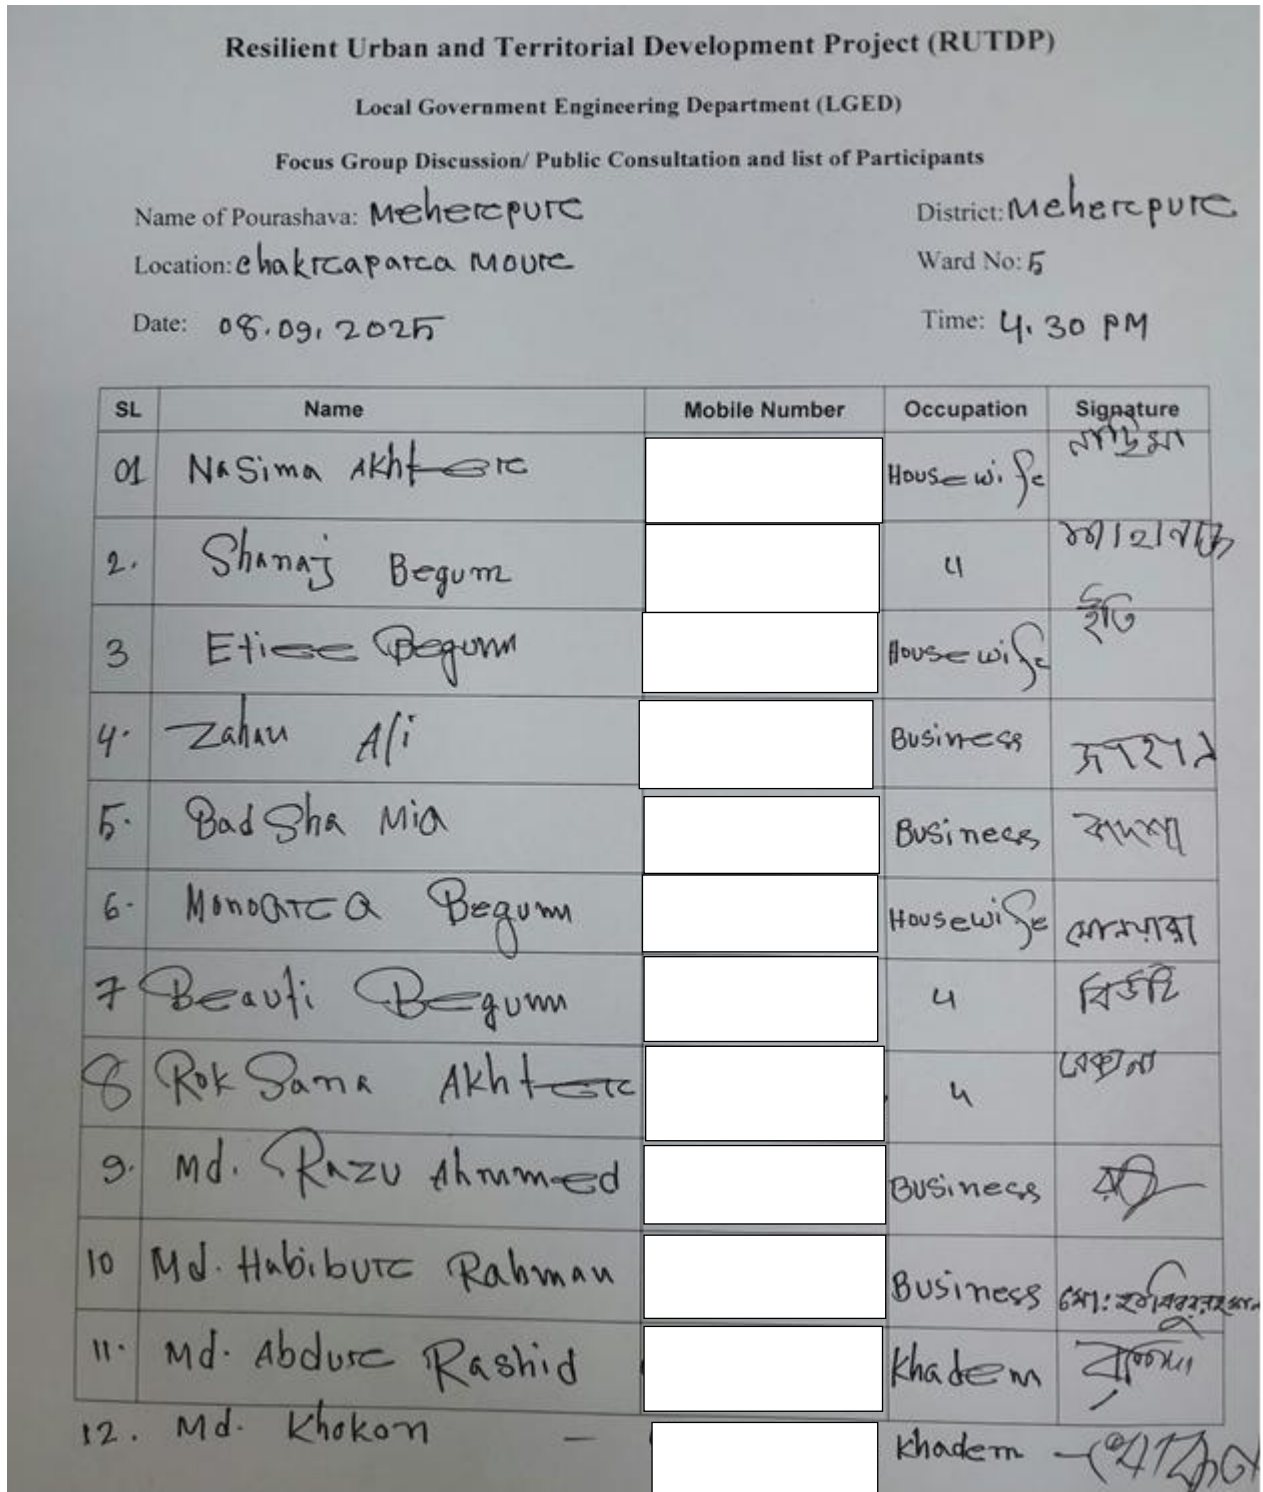 Resilient Urban and Territorial Development Project (RUTDP)
Local Government Engineering Department (LGED)
Focus Group Discussion/ Public Consultation and list of Participants
Name of Pourashava: Meherpur District: Meherpur
Location: Chakrapara Mour Ward No: 5
Date: 08.09.2025 Time: 4.30 PM
SL Name Mobile Number Occupation Signature
01 Nasima Akhter Housewife
2. Shanaj Begum 4 শাহানাজ
3 Begum Housewife ইতি
4. Zahan Ali Business জাহান
5. Badsha Mia Business বাদশা
6. Monoara Begum Housewife মোনয়ারা
7 Beauti Begum 4 বিউটি
8 Roksana Akhter 4
9. Md. Razu Ahmmed Business
10 Md. Habibur Rahman Business মো: হাবিবুর রহমান
11. Md. Abdur Rashid Khadem
12. Md. Khokon — Khadem — খোকন